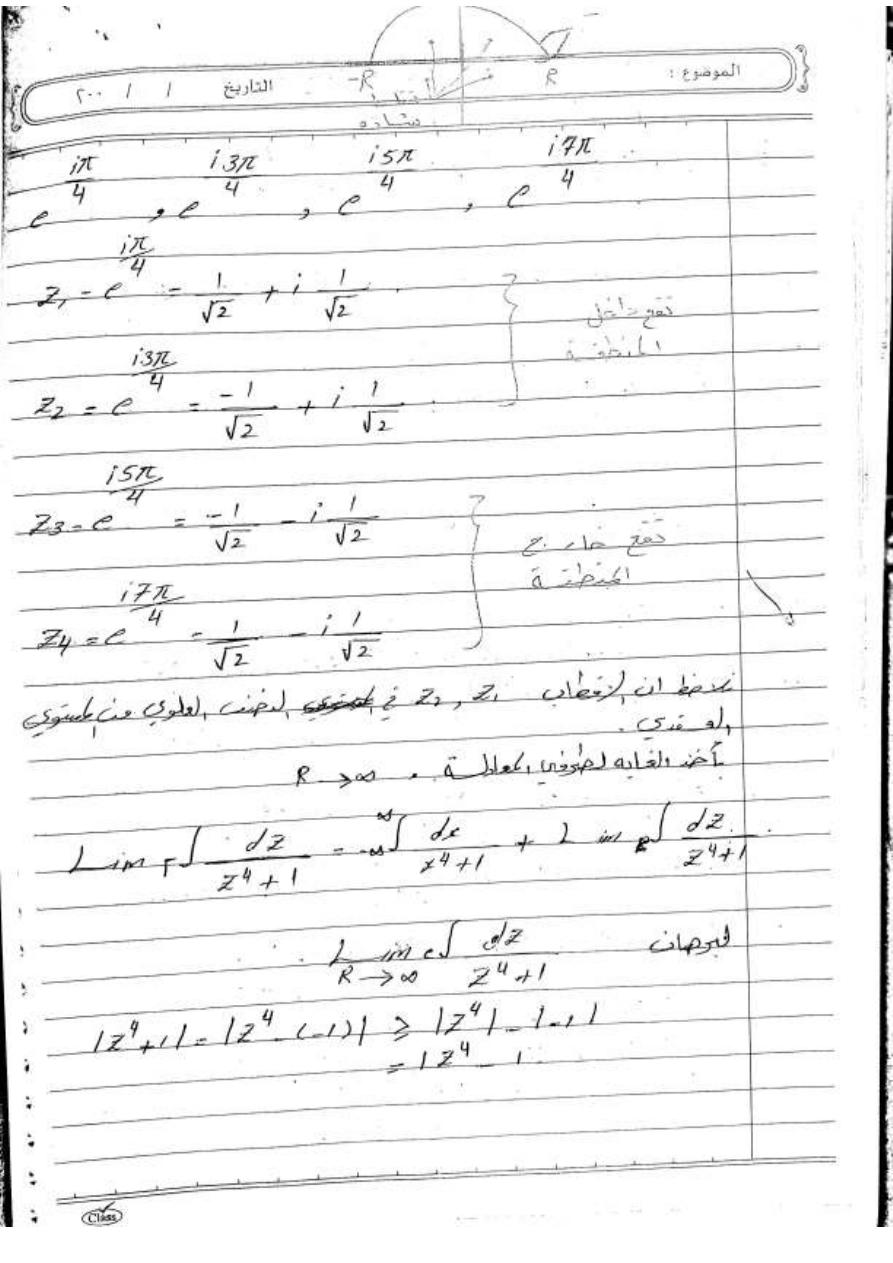 -R R
الموضوع : التاريخ / / ٢٠٠
e^{iπ/4} , e^{i3π/4} , e^{i5π/4} , e^{i7π/4}
z₁ = e^{iπ/4} = 1/√2 + i 1/√2
تقع داخل
المنطقة
z₂ = e^{i3π/4} = -1/√2 + i 1/√2
z₃ = e^{i5π/4} = -1/√2 - i 1/√2
تقع خارج
المنطقة
z₄ = e^{i7π/4} = 1/√2 - i 1/√2
نلاحظ ان الاقطاب z₁ , z₂ في النصف العلوي من المستوي
العقدي .
نأخذ الغايه لطرفي المعادلة . R → ∞
Lim Γ∫ dz/(z⁴ + 1) = -∞∫^∞ dx/(x⁴+1) + Lim ∫ dz/(z⁴+1)
لبرهان Lim_{R → ∞} c∫ dz/(z⁴+1)
|z⁴+1| = |z⁴ - (-1)| ≥ |z⁴| - |-1|
= |z⁴ - 1
Class